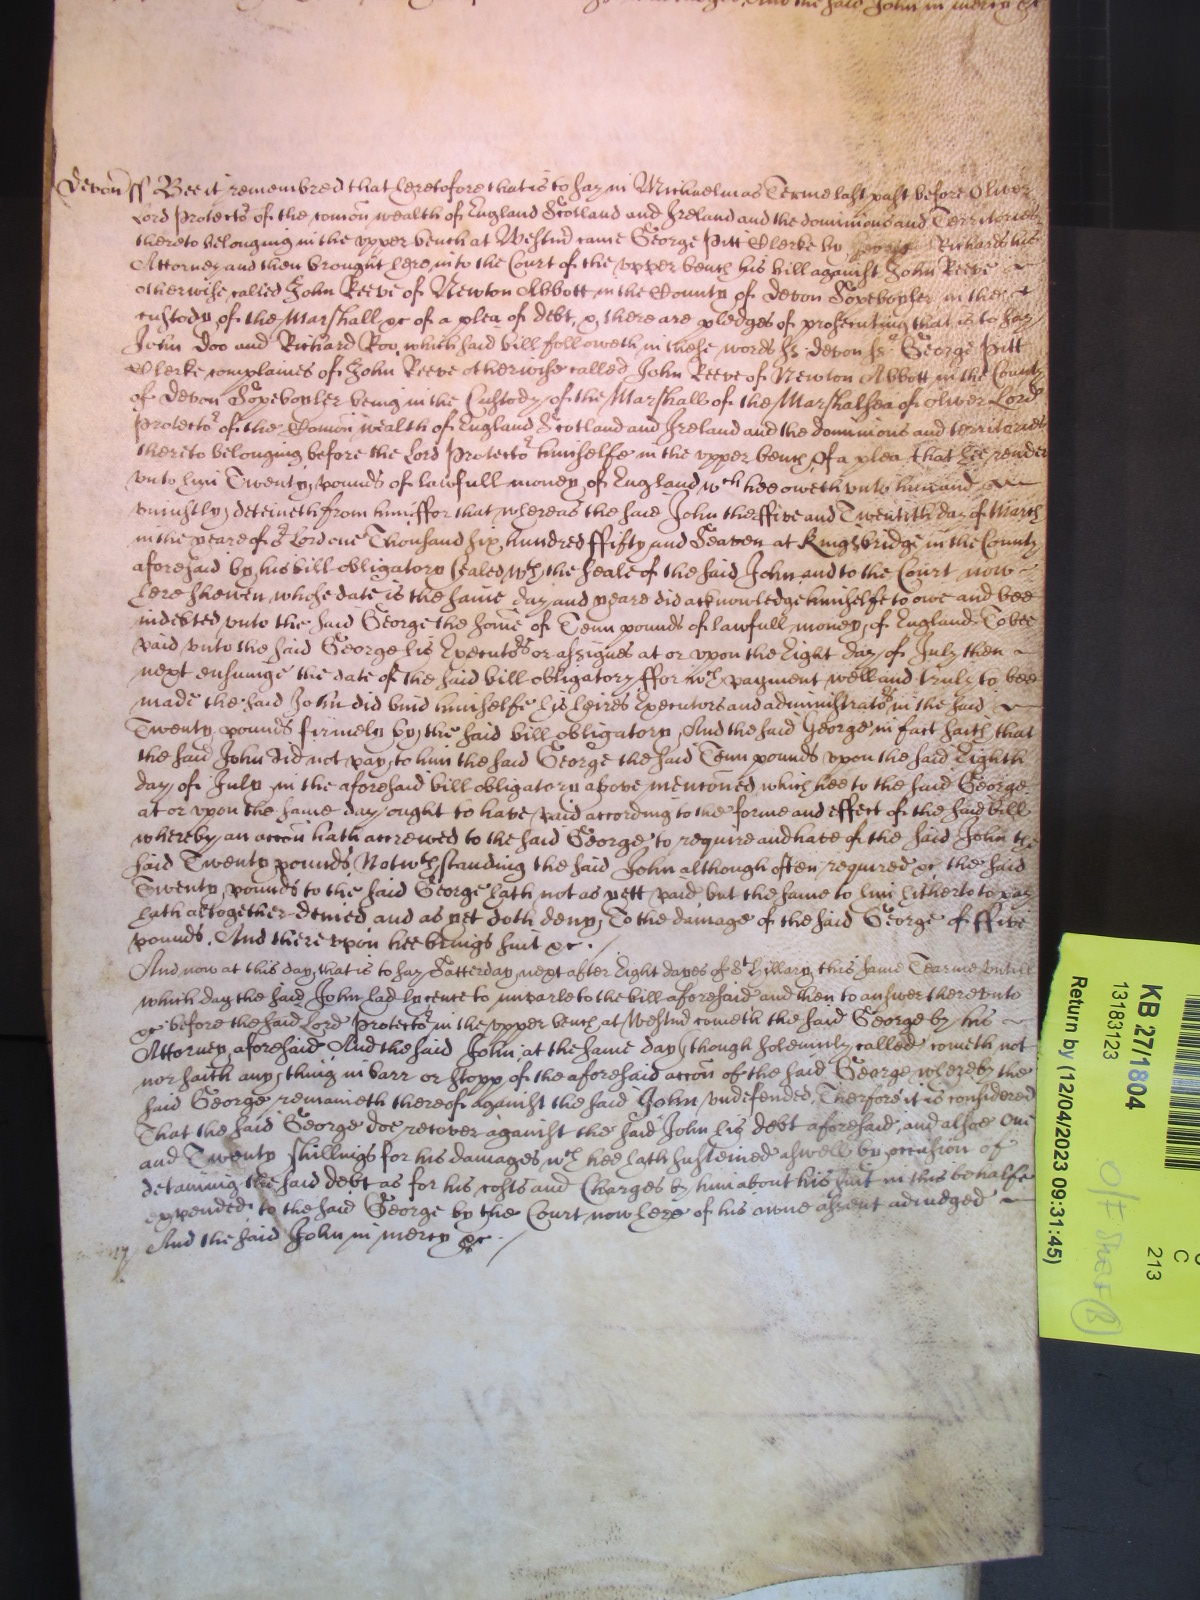 And the said John in mercy &c
Devon ss Bee it remembred that heretofore that is to say in Michaelmas Terme last past before Oliver
Lord Protector of the comon wealth of England Scotland and Ireland and the dominions and Territories
thereto belonging in the upper bench at Westmr came George Pitt Clerke by Richards his
Attorney and then brought here into the Court of the upper bench his bill against John Reeve
otherwise called John Reeve of Newton Abbott in the County of Devon Sopeboyler in the
custody of the Marshall &c of a plea of debt, & there are pledges of prosecuting that is to say
John Doo and Richard Roo, which said bill followeth in these words ss devon ss George Pitt
Clerke complaines of John Reeve otherwise called John Reeve of Newton Abbott in the County
of Devon Sopeboyler being in the Custody of the Marshall of the Marshalsea of Oliver Lord
Protector of the Comon wealth of England Scotland and Ireland and the dominions and territories
thereto belonging before the Lord Protector himselfe in the upper bench Of a plea that hee render
unto him Twenty pounds of lawfull money of England wch hee oweth unto him and
uniustly deteineth from him ffor that whereas the said John the ffive and Twentith day of March
in the yeare of or Lord one Thousand six hundred ffifty and Seaven at Kingsbridge in the County
aforesaid by his bill obligatory sealed wth the seale of the said John and to the Court now
here shewen whose date is the same day and yeare did acknowledge himselfe to owe and bee
indebted unto the said George the some of Tenn pounds of lawfull money of England To bee
paid unto the said George his Executors or assignes at or upon the Eight day of July then
next ensuinge the date of the said bill obligatory ffor wch payment well and truly to bee
made the said John did bind himselfe his heires Executors and administrators in the said
Twenty pounds firmely by the said bill obligatory And the said George in fact saith that
the said John did not pay to him the said George the said Tenn pounds upon the said Eighth
day of July in the aforesaid bill obligatory above mencioned which hee to the said George
at or upon the same day ought to have paid according to the forme and effect of the said bill
whereby an accon hath accrewed to the said George to require and have of the said John the
said Twenty pounds Notwthstanding the said John although often required &c the said
Twenty pounds to the said George hath not as yett paid but the same to him hitherto to pay
hath altogether denied and as yet doth deny To the damage of the said George of ffive
pounds. And thereupon hee brings suit &c.
And now at this day that is to say Satterday next after Eight dayes of St Hillary this same Tearme untill
which day the said John had lycence to imparle to the bill aforesaid and then to answer thereunto
&c before the said Lord Protector in the upper bench at Westmr cometh the said George by his
Attorney aforesaid And the said John at the same day though solemnly called cometh not
nor saith any thing in barr or stopp of the aforesaid accon of the said George whereby the
said George remaineth thereof against the said John undefended, Therfore it is considered
That the said George doe recover against the said John his debt aforesaid, and alsoe One
and Twenty shillings for his damages wch hee hath susteined aswell by occasion of
detaining the said debt as for his costs and Charges by him about his suit in this behalfe
expended, to the said George by the Court now here of his owne assent adiudged
And the said John in mercy &c.
KB 27/1804
13183123
Return by (12/04/2023 09:31:45)
C
213